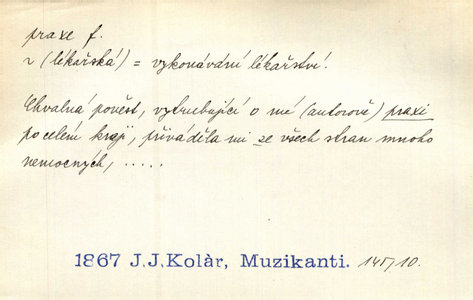 praxe f.
~ (lékařská) = vykonávání lékařství.
Chvalná pověst, vytrubující o mé (autorově) praxi
po celém kraji, přiváděla mi ze všech stran mnoho
nemocných, .....
1867 J.J.Kolàr, Muzikanti. 145/10.